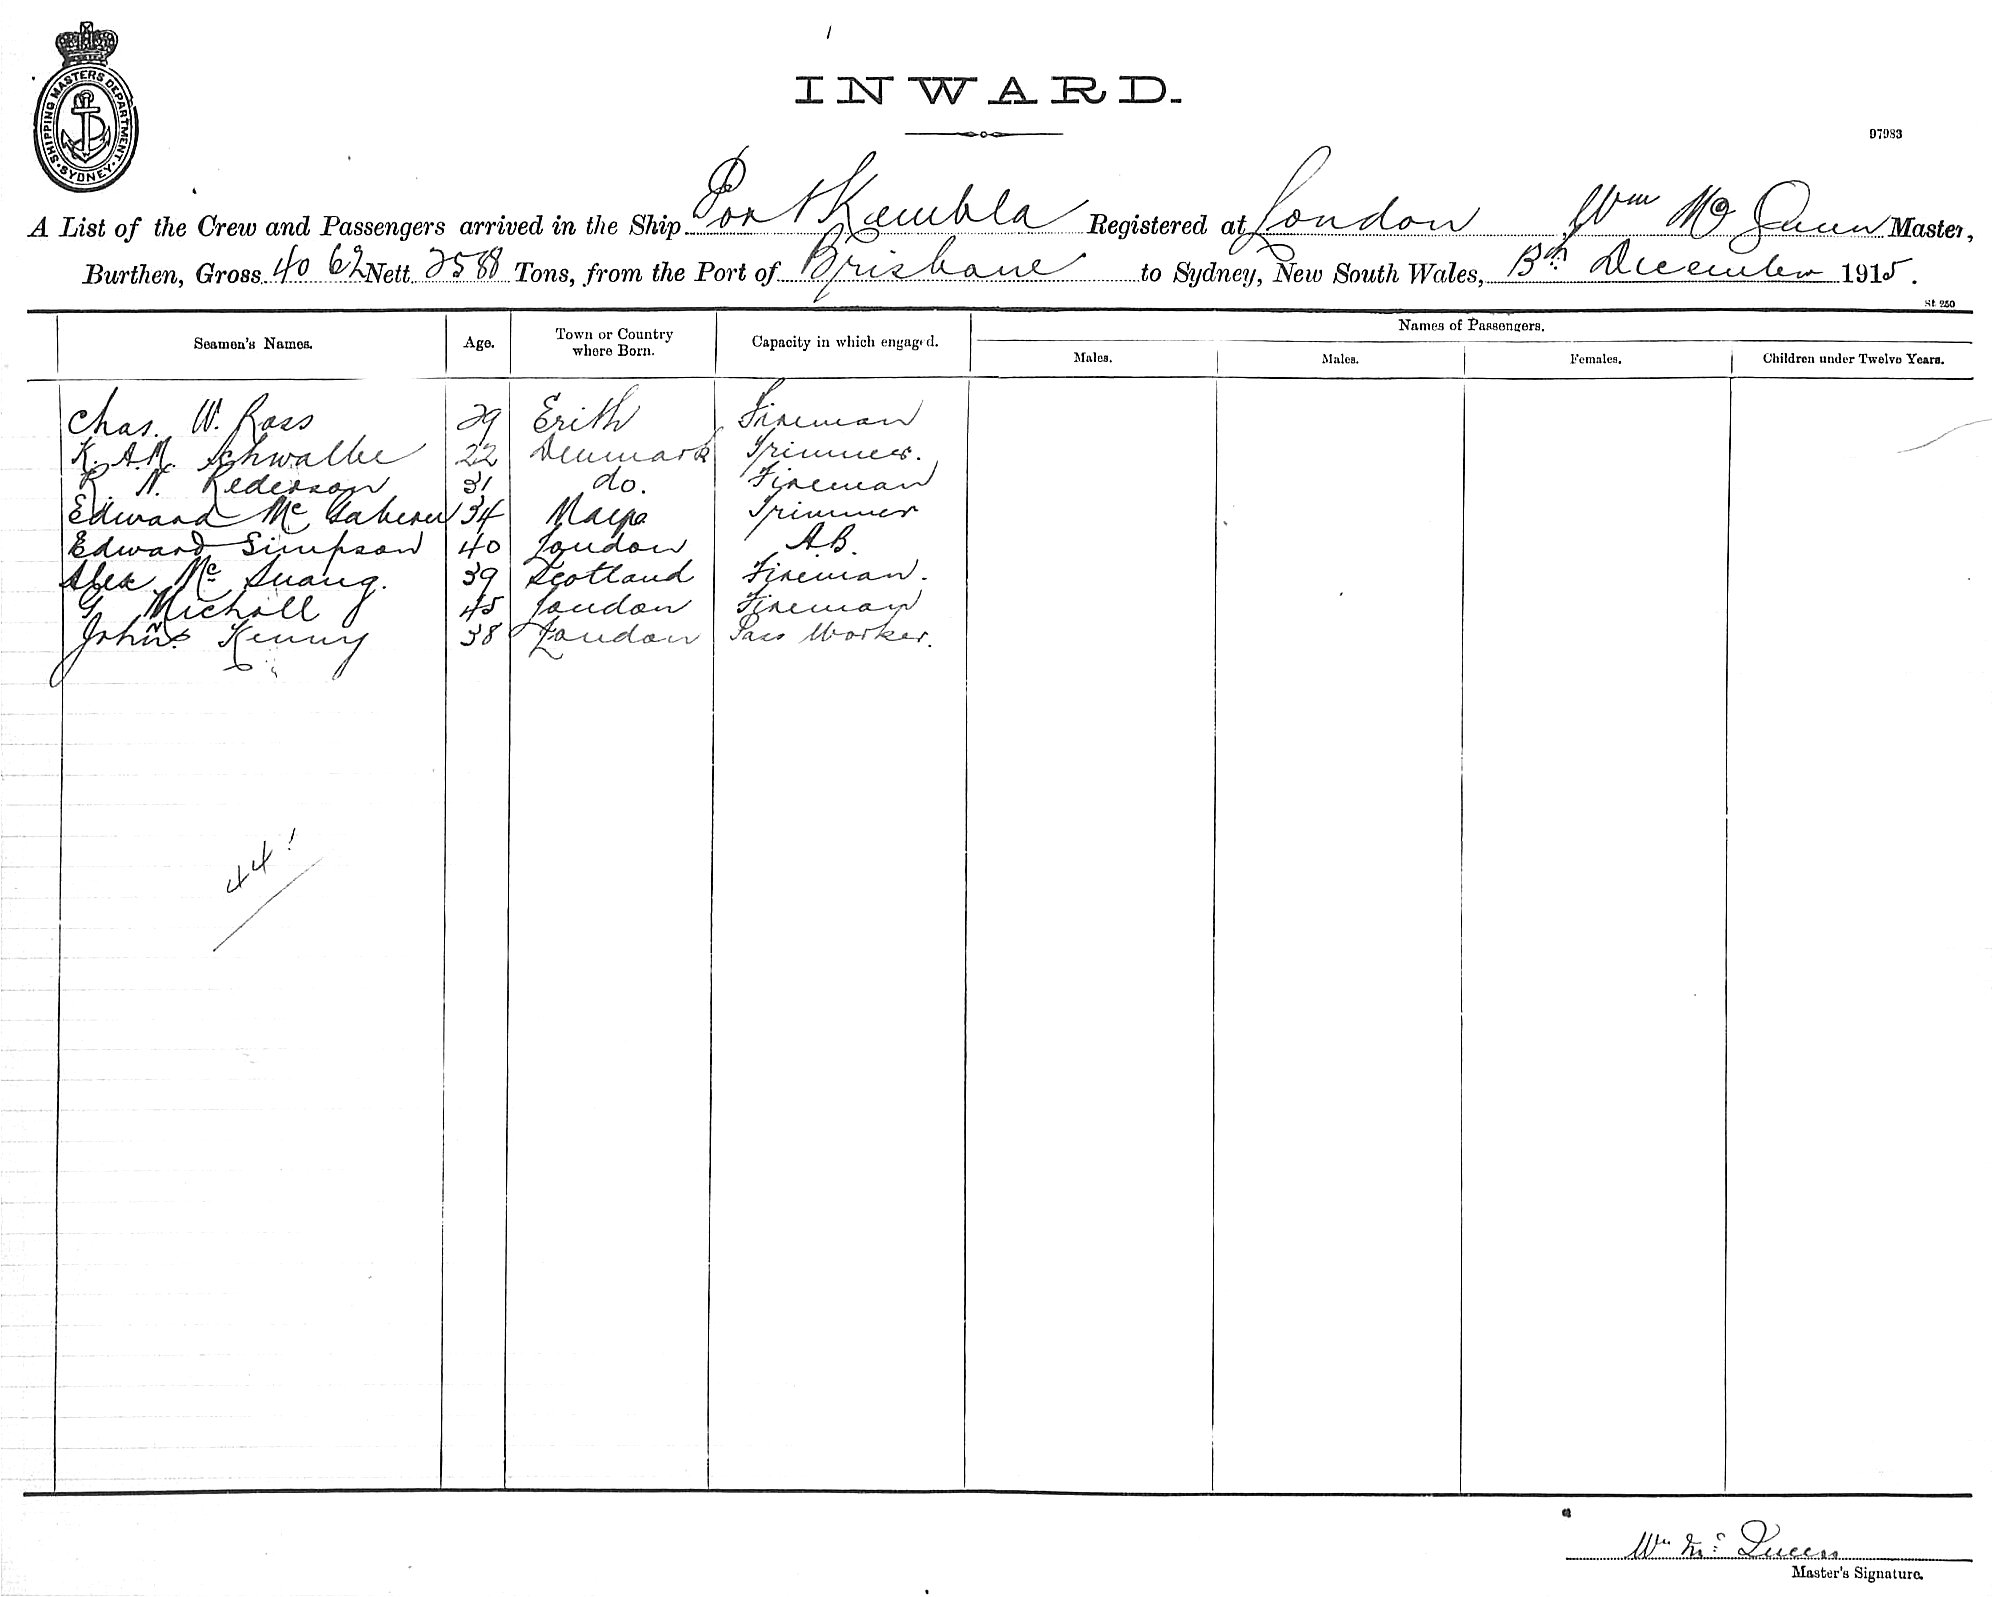 SHIPPING MASTERS DEPARTMENT. SYDNEY.
INWARD.
97983
A List of the Crew and Passengers arrived in the Ship Port Kembla Registered at London Wm Mc Master,
Burthen, Gross 4062 Nett 2588 Tons, from the Port of Brisbane to Sydney, New South Wales, December 1915.
St 250
Seamen's Names. Age. Town or Country where Born. Capacity in which engaged. Names of Passengers.
Males. Males. Females. Children under Twelve Years.
Chas. W. Ross 29 Erith Fireman
K. A. M. Schwalbe 22 Denmark Trimmer.
R. N. Pederson 31 do. Fireman
Edward Mc 34 Trimmer
Edward Simpson 40 London A.B.
Alex Mc 39 Scotland Fireman.
G. Micholl 45 London Fireman
Johns Kenny 38 London Pass Worker.
44
Wm Mc Queen
Master's Signature.